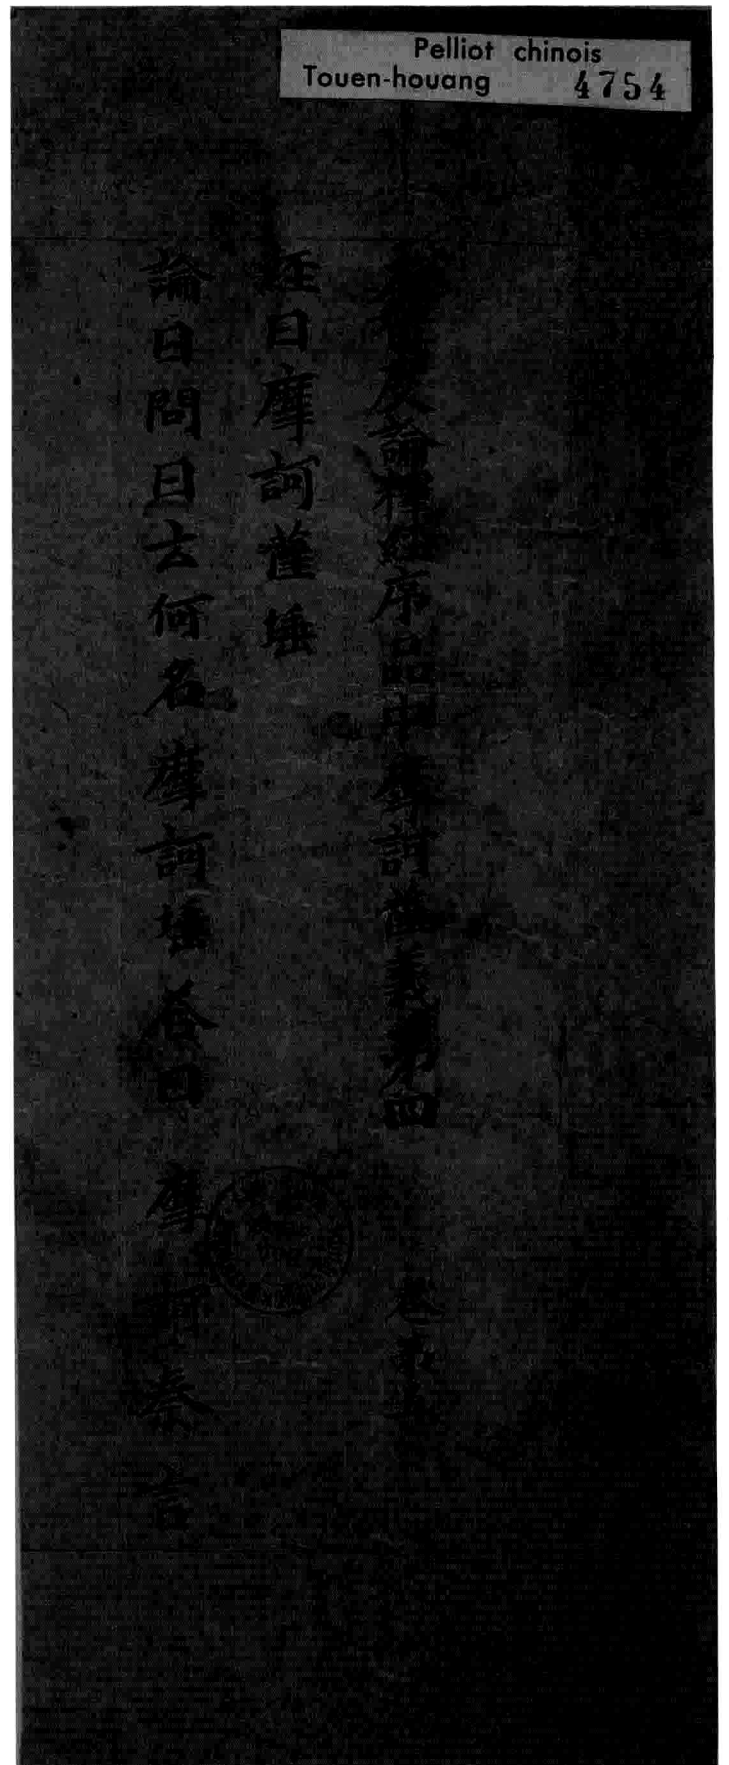 Pelliot chinois
Touen-houang 4754
度論釋經序品中摩訶薩義第四 卷第五
經曰摩訶薩埵
論曰問曰云何名摩訶埵荅曰摩訶秦言